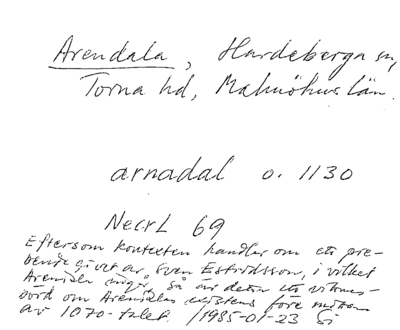 Arendala, Hardeberga sn,
Torna hd, Malmöhus län.
arnadal o. 1130
NecrL 69
Eftersom kontexten handler om ett pre-
bende givet av Sven Estridsson, i vilket
Arendala ingår, så är detta ett vittnes-
börd om Arendalas existens före mitten
av 1070-talet. /1985-01-23